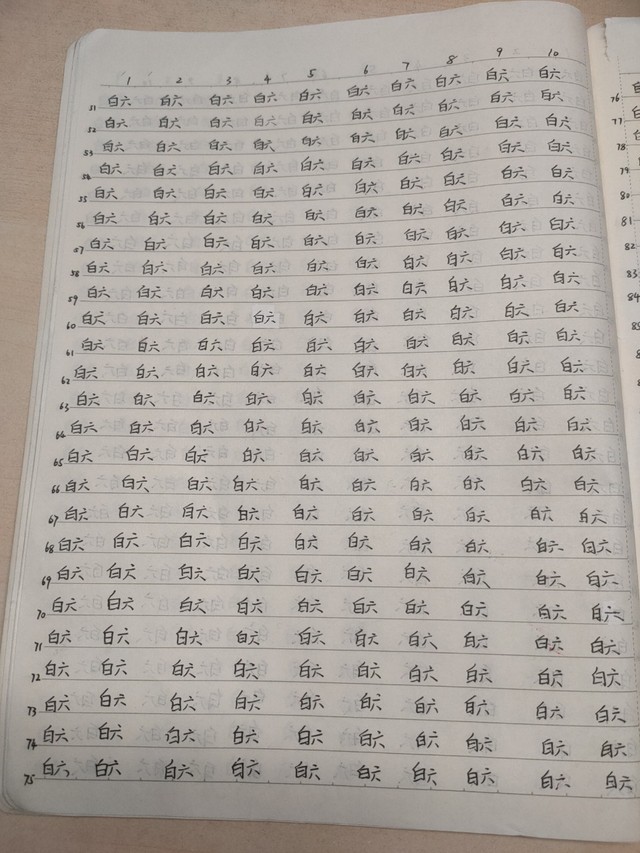 1 2 3 4 5 6 7 8 9 10
51 白六 白六 白六 白六 白六 白六 白六 白六 白六 白六
52 白六 白六 白六 白六 白六 白六 白六 白六 白六 白六
53 白六 白六 白六 白六 白六 白六 白六 白六 白六 白六
54 白六 白六 白六 白六 白六 白六 白六 白六 白六 白六
55 白六 白六 白六 白六 白六 白六 白六 白六 白六 白六
56 白六 白六 白六 白六 白六 白六 白六 白六 白六 白六
57 白六 白六 白六 白六 白六 白六 白六 白六 白六 白六
58 白六 白六 白六 白六 白六 白六 白六 白六 白六 白六
59 白六 白六 白六 白六 白六 白六 白六 白六 白六 白六
60 白六 白六 白六 白六 白六 白六 白六 白六 白六 白六
61 白六 白六 白六 白六 白六 白六 白六 白六 白六 白六
62 白六 白六 白六 白六 白六 白六 白六 白六 白六 白六
63 白六 白六 白六 白六 白六 白六 白六 白六 白六 白六
64 白六 白六 白六 白六 白六 白六 白六 白六 白六 白六
65 白六 白六 白六 白六 白六 白六 白六 白六 白六 白六
66 白六 白六 白六 白六 白六 白六 白六 白六 白六 白六
67 白六 白六 白六 白六 白六 白六 白六 白六 白六 白六
68 白六 白六 白六 白六 白六 白六 白六 白六 白六 白六
69 白六 白六 白六 白六 白六 白六 白六 白六 白六 白六
70 白六 白六 白六 白六 白六 白六 白六 白六 白六 白六
71 白六 白六 白六 白六 白六 白六 白六 白六 白六 白六
72 白六 白六 白六 白六 白六 白六 白六 白六 白六 白六
73 白六 白六 白六 白六 白六 白六 白六 白六 白六 白六
74 白六 白六 白六 白六 白六 白六 白六 白六 白六 白六
75 白六 白六 白六 白六 白六 白六 白六 白六 白六 白六
76
77
78
79
80
81
82
83
84